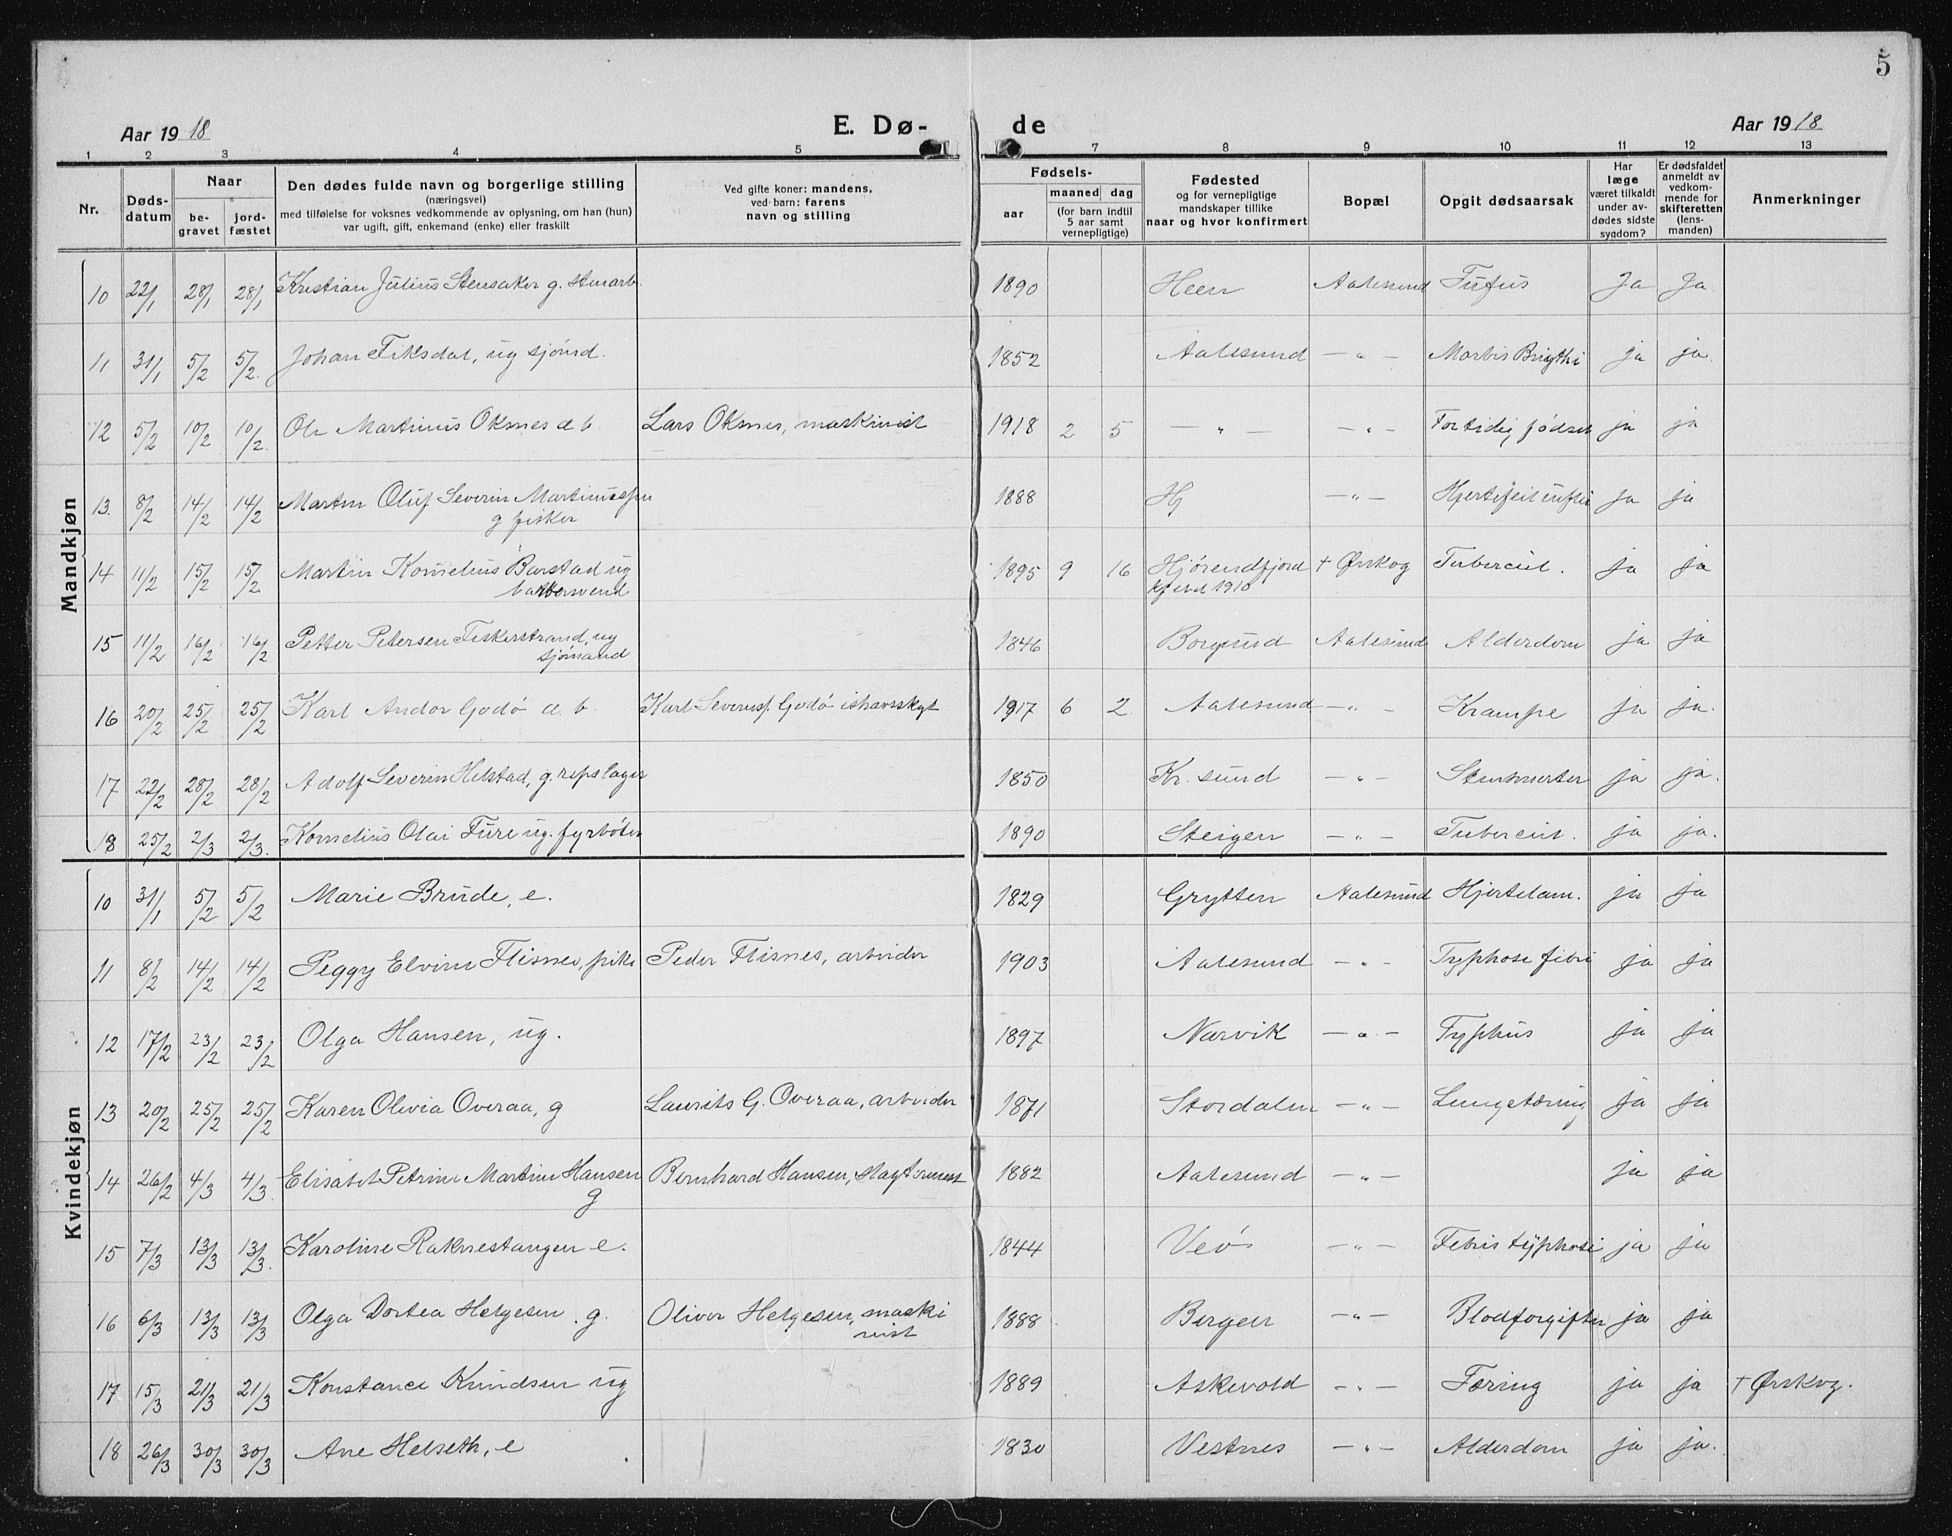 5
Aar 1918 E. Dø- de Aar 1918
1 2 3 4 5 7 8 9 10 11 12 13
Nr. Døds-datum Naar be-gravet jord-fæstet
Den dødes fulde navn og borgerlige stilling
(næringsvei)
med tilføielse for voksnes vedkommende av oplysning, om han (hun)
var ugift, gift, enkemand (enke) eller fraskilt
Ved gifte koner: mandens,
ved barn: farens
navn og stilling
Fødsels-
aar maaned dag
(for barn indtil
5 aar samt
vernepligtige)
Fødested
og for vernepligtige
mandskaper tillike
naar og hvor konfirmert
Bopæl
Opgit dødsaarsak
Har
læge
været tilkaldt
under av-
dødes sidste
sygdom?
Er dødsfaldet
anmeldt av
vedkom-
mende for
skifteretten
(lens-
manden)
Anmerkninger
Mandkjøn
10 22/1 28/1 28/1 Kristian Julius Stensaker g. 1890 Heen Aalesund Ja Ja.
11 31/1 5/2 5/2. Johan Fiksdal, ug sjømd. 1852 Aalesund —"— Morbis Brigthi ja ja.
12 5/2 10/2 10/2. Ole Martinus Oksnes d. b. Lars Oksnes, maskinist 1918 2 5 —"— —"— For tidig fødsel ja ja
13. 8/2 14/2 14/2 Martin Oluf Severin
g fisker 1888 Hj —"— ja ja
14 11/2 15/2 15/2. Martin Kornelius Barstad ug
barbersvend 1895 9 16 Hjørendfjord + Ørskog Tubercul. ja ja
15 11/2 16/2 16/2 Petter Petersen Fiskerstrand, ug
sjømand 1846 Borgund Aalesund Alderdom ja ja
16 20/2 25/2 25/2 Karl Andor Godø d. b. Karl Severinsf. Godø ishavsskyt 1917 6 2. Aalesund —"— Krampe ja ja.
17 22/2 28/2 28/2 Adolf Severin Helstad, g. repslager 1850 Kr. sund —"— ja ja.
18 25/2 2/3 2/3. Kornelius Olai Fure ug. fyrbøter 1890 Steigen —"— Tubercul. ja ja.
Kvindekjøn
10 31/1 5/2 5/2 Marie Brude, e. 1829 Grytten Aalesund Hjertelam. ja ja
11 8/2 14/2 14/2 Peggy Elvine Flisnes, pike Peder Flisnes, arbeider 1903 Aalesund —"— Typhose febri ja ja
12 17/2 23/2 23/2 Olga Hansen, ug. 1897 Narvik —"— Typhus ja ja
13 20/2 25/2 25/2 Karen Olivia Overaa, g Laurits G. Overaa, arbeider 1871 Stordalen —"— Lungetæring ja ja
14 26/2 4/3 4/3. Elisabet Petrine Martine Hansen
g Bernhard Hansen, 1882 Aalesund —"— ja ja
15 7/3 13/3 13/3 Karoline Raknestangen e. 1844 Veø —"— Febris typhosi ja ja
16 6/3 13/3 13/3 Olga Dortea Helgesen . g. Oliver Helgesen, maski
nist 1888 Bergen —"— Blodforgiftn ja ja
17 15/3 21/3 21/3 Konstance Knudsen ug 1889 Askevold —"— Tæring ja ja + Ørskog.
18 26/3 30/3 30/3 Ane Helseth, e 1830 Vestnes —"— Alderdom ja ja.